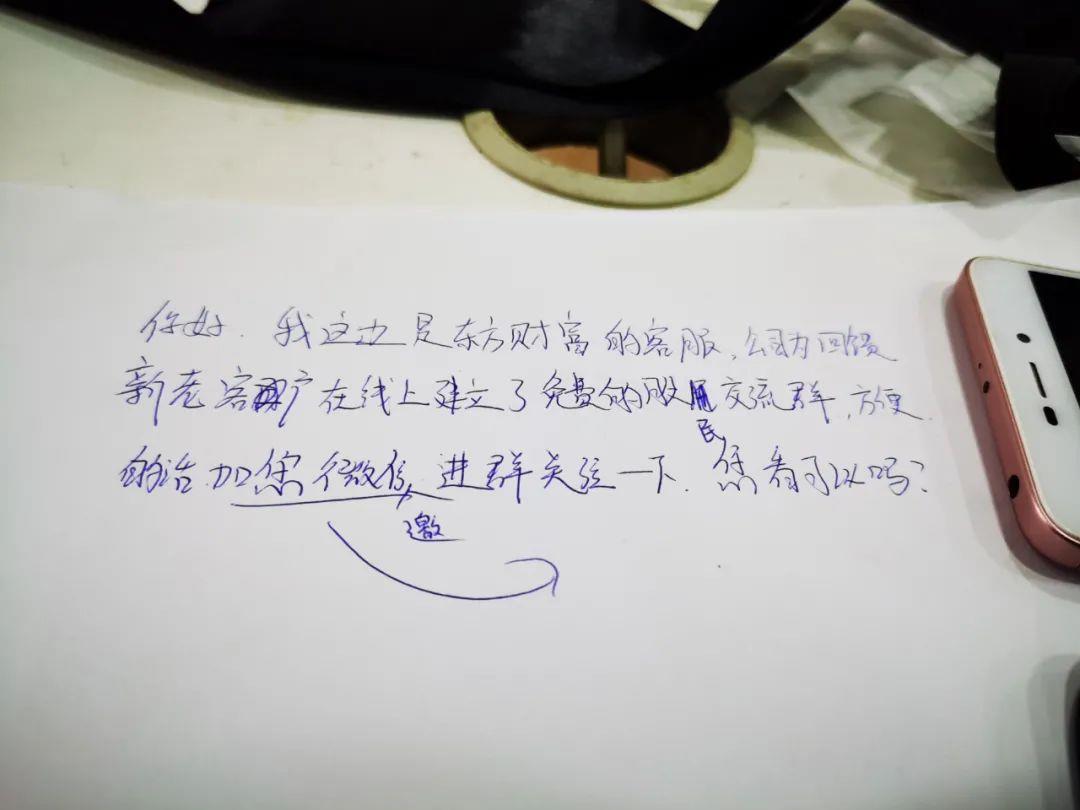 你好. 我这边是东方财富的客服, 公司为回馈
新老客户在线上建立了免费的股民交流群, 方便
的话 加您个微信, 邀进群关注一下. 您看可以吗?